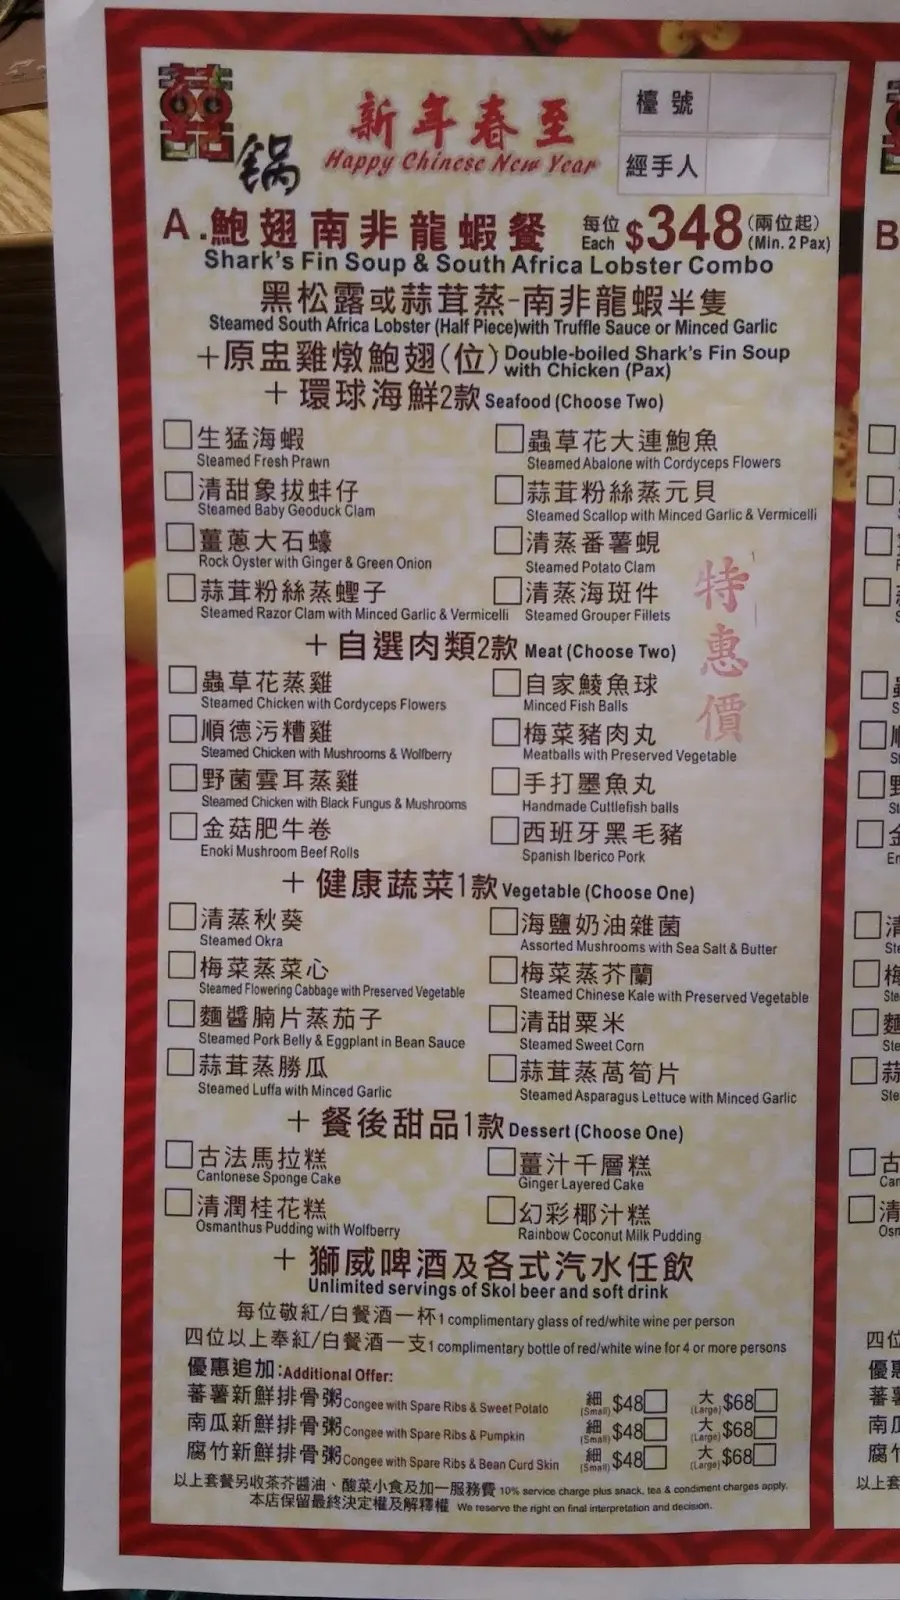 囍
鍋
新年春至
Happy Chinese New Year
檯號
經手人
A.鮑翅南非龍蝦餐 每位 Each $348 (兩位起) (Min. 2 Pax)
Shark's Fin Soup & South Africa Lobster Combo
黑松露或蒜茸蒸-南非龍蝦半隻
Steamed South Africa Lobster (Half Piece)with Truffle Sauce or Minced Garlic
+原盅雞燉鮑翅(位) Double-boiled Shark's Fin Soup with Chicken (Pax)
+ 環球海鮮2款 Seafood (Choose Two)
生猛海蝦 蟲草花大連鮑魚
Steamed Fresh Prawn Steamed Abalone with Cordyceps Flowers
清甜象拔蚌仔 蒜茸粉絲蒸元貝
Steamed Baby Geoduck Clam Steamed Scallop with Minced Garlic & Vermicelli
薑蔥大石蠔 清蒸番薯蜆
Rock Oyster with Ginger & Green Onion Steamed Potato Clam
蒜茸粉絲蒸蟶子 清蒸海斑件
Steamed Razor Clam with Minced Garlic & Vermicelli Steamed Grouper Fillets
特惠價
+ 自選肉類2款 Meat (Choose Two)
蟲草花蒸雞 自家鯪魚球
Steamed Chicken with Cordyceps Flowers Minced Fish Balls
順德污糟雞 梅菜豬肉丸
Steamed Chicken with Mushrooms & Wolfberry Meatballs with Preserved Vegetable
野菌雲耳蒸雞 手打墨魚丸
Steamed Chicken with Black Fungus & Mushrooms Handmade Cuttlefish balls
金菇肥牛卷 西班牙黑毛豬
Enoki Mushroom Beef Rolls Spanish Iberico Pork
+ 健康蔬菜1款 Vegetable (Choose One)
清蒸秋葵 海鹽奶油雜菌
Steamed Okra Assorted Mushrooms with Sea Salt & Butter
梅菜蒸菜心 梅菜蒸芥蘭
Steamed Flowering Cabbage with Preserved Vegetable Steamed Chinese Kale with Preserved Vegetable
麵醬腩片蒸茄子 清甜粟米
Steamed Pork Belly & Eggplant in Bean Sauce Steamed Sweet Corn
蒜茸蒸勝瓜 蒜茸蒸萵筍片
Steamed Luffa with Minced Garlic Steamed Asparagus Lettuce with Minced Garlic
+ 餐後甜品1款 Dessert (Choose One)
古法馬拉糕 薑汁千層糕
Cantonese Sponge Cake Ginger Layered Cake
清潤桂花糕 幻彩椰汁糕
Osmanthus Pudding with Wolfberry Rainbow Coconut Milk Pudding
+ 獅威啤酒及各式汽水任飲
Unlimited servings of Skol beer and soft drink
每位敬紅/白餐酒一杯 1 complimentary glass of red/white wine per person
四位以上奉紅/白餐酒一支 1 complimentary bottle of red/white wine for 4 or more persons
優惠追加:Additional Offer:
蕃薯新鮮排骨粥 Congee with Spare Ribs & Sweet Potato 細 (Small) $48 大 (Large) $68
南瓜新鮮排骨粥 Congee with Spare Ribs & Pumpkin 細 (Small) $48 大 (Large) $68
腐竹新鮮排骨粥 Congee with Spare Ribs & Bean Curd Skin 細 (Small) $48 大 (Large) $68
以上套餐另收茶芥醬油、酸菜小食及加一服務費 10% service charge plus snack, tea & condiment charges apply.
本店保留最終決定權及解釋權 We reserve the right on final interpretation and decision.
B